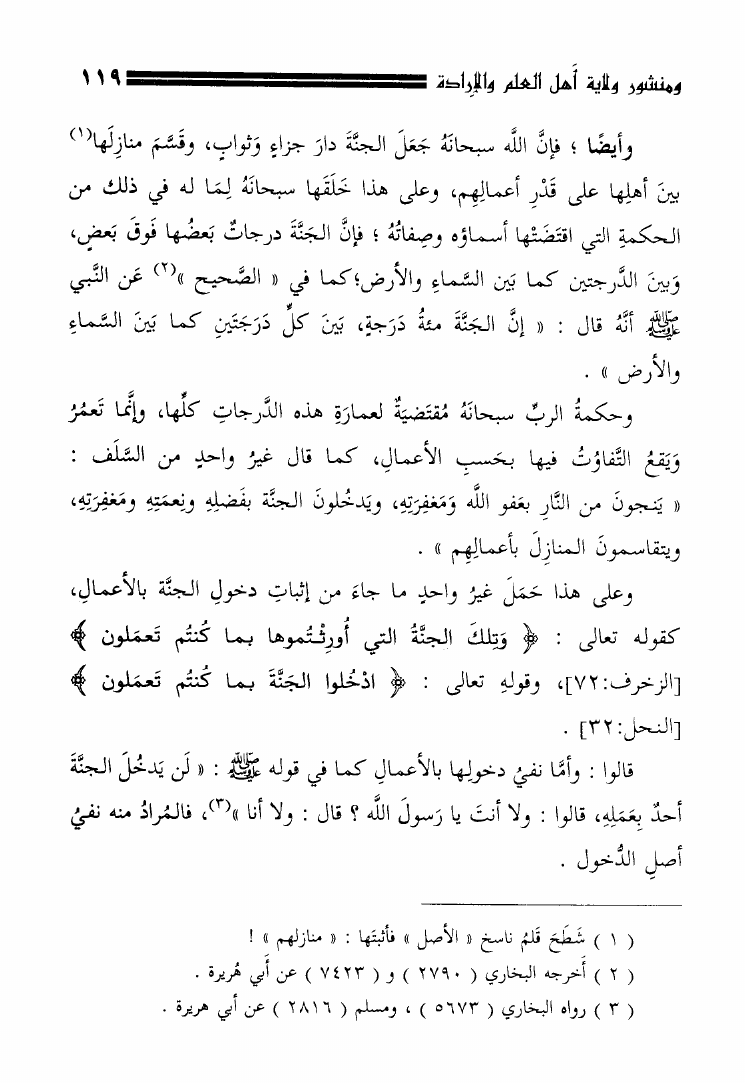 ومنشور ولاية أهل العلم والإرادة ١١٩
وأيضًا ؛ فإنَّ اللَّه سبحانَهُ جَعَلَ الجنَّةَ دارَ جزاءٍ وَثوابٍ، وقَسَّمَ منازِلَها(١)
بينَ أهلِها على قَدْرِ أعمالِهِم، وعلى هذا خَلَقَها سبحانَهُ لِمَا له في ذلك من
الحكمةِ التي اقتَضَتْها أسماؤه وصِفاتُهُ ؛ فإنَّ الجَنَّةَ درجاتٌ بَعضُها فَوقَ بَعضٍ،
وَبينَ الدَّرجتين كما بَين السَّماءِ والأرض؛كما في « الصَّحيح »(٢) عَن النَّبي
ﷺ أنَّهُ قال : « إنَّ الجَنَّةَ مئةُ دَرَجةٍ، بَينَ كلِّ دَرَجَتَينِ كما بَينَ السَّماءِ
والأرض » .
وحكمةُ الربِّ سبحانَهُ مُقتَضيَةٌ لعمارَةِ هذه الدَّرجاتِ كلِّها، وإنَّما تَعمُرُ
وَيَقعُ التَّفاوُتُ فيها بحَسبِ الأعمالِ، كما قال غيرُ واحدٍ من السَّلَف :
« يَنجونَ من النَّارِ بعَفو اللَّه وَمَغفِرَتِهِ، ويَدخُلونَ الجنَّة بفَضلِهِ ونِعمَتِهِ ومَغفِرَتِهِ،
ويتقاسمونَ المنازِلَ بأعمالِهِم » .
وعلى هذا حَمَلَ غيرُ واحدٍ ما جاءَ من إثباتِ دخولِ الجنَّة بالأعمالِ،
كقوله تعالى : ﴿ وَتِلكَ الجنَّةُ التي أُورِثْـتُموها بـما كُنتُم تَعمَلون ﴾
[الزخرف:٧٢]، وقولهِ تعالى : ﴿ ادْخُلوا الجَنَّةَ بـما كُنتُم تَعمَلون ﴾
[النحل:٣٢] .
قالوا : وأمَّا نفيُ دخولِها بالأعمالِ كما في قوله ﷺ : « لَن يَدخُلَ الجنَّةَ
أحدٌ بِعَمَلِهِ، قالوا : ولا أنتَ يا رَسولَ اللَّه ؟ قال : ولا أنا »(٣)، فالمُرادُ منه نفيُ
أصلِ الدُّخول .
( ١ ) شَطَحَ قَلمُ ناسخ « الأصل » فأثبتَها : « منازلهم » !
( ٢ ) أخرجه البخاري ( ٢٧٩٠ ) و ( ٧٤٢٣ ) عن أبي هُريرة .
( ٣ ) رواه البخاري ( ٥٦٧٣ ) ، ومسلم ( ٢٨١٦ ) عن أبي هريرة .